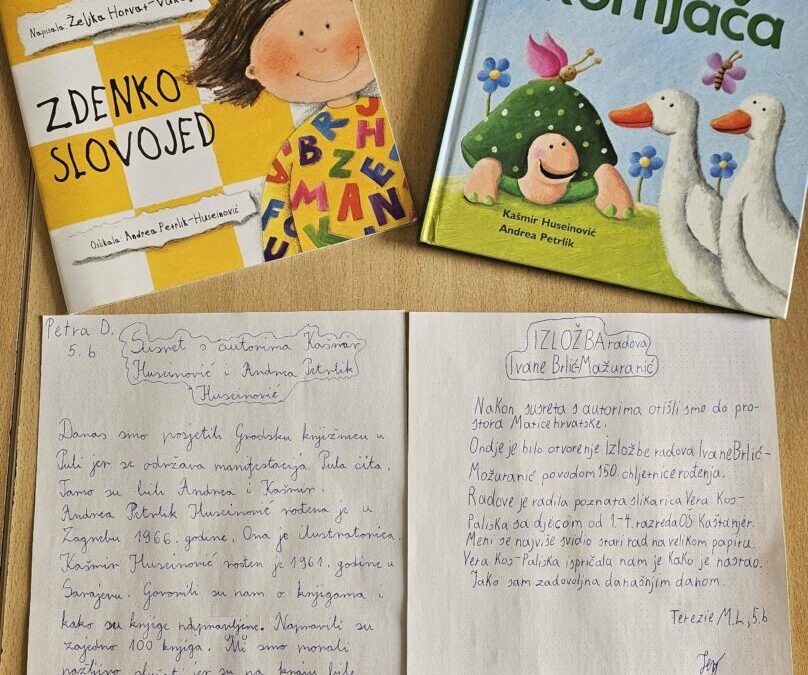 Napisala: Željka Horvat-Vukelja
ZDENKO
SLOVOJED
Oslikala: Andrea Petrlik-Huseinović
kornjača
Kašmir Huseinović
Andrea Petrlik
Petra D.
5. b
Susret s autorima Kašmir
Huseinović i Andrea Petrlik
Huseinović
Danas smo posjetili Gradsku knjižnicu u
Puli jer se održava manifestacija Pula čita.
Tamo su bili Andrea i Kašmir.
Andrea Petrlik Huseinović rođena je u
Zagrebu 1966. godine. Ona je ilustratorica.
Kašmir Huseinović rođen je 1961. godine u
Sarajevu. Govorili su nam o knjigama i
kako su knjige napravljene. Napravili su
zajedno 100 knjiga. Mi smo morali
pažljivo slušati jer su na kraju bile
IZLOŽBA radova
Ivane Brlić-Mažuranić
Nakon susreta s autorima otišli smo do pro-
stora Matice hrvatske.
Ondje je bilo otvorenje izložbe radova Ivane Brlić-
Mažuranić povodom 150. obljetnice rođenja.
Radove je radila poznata slikarica Vera Kos-
Paliska sa djecom od 1.-4. razreda OŠ Kaštanjer.
Meni se najviše svidio stari rad na velikom papiru.
Vera Kos-Paliska ispričala nam je kako je nastao.
Jako sam zadovoljna današnjim danom.
Terezie M.L., 5.b